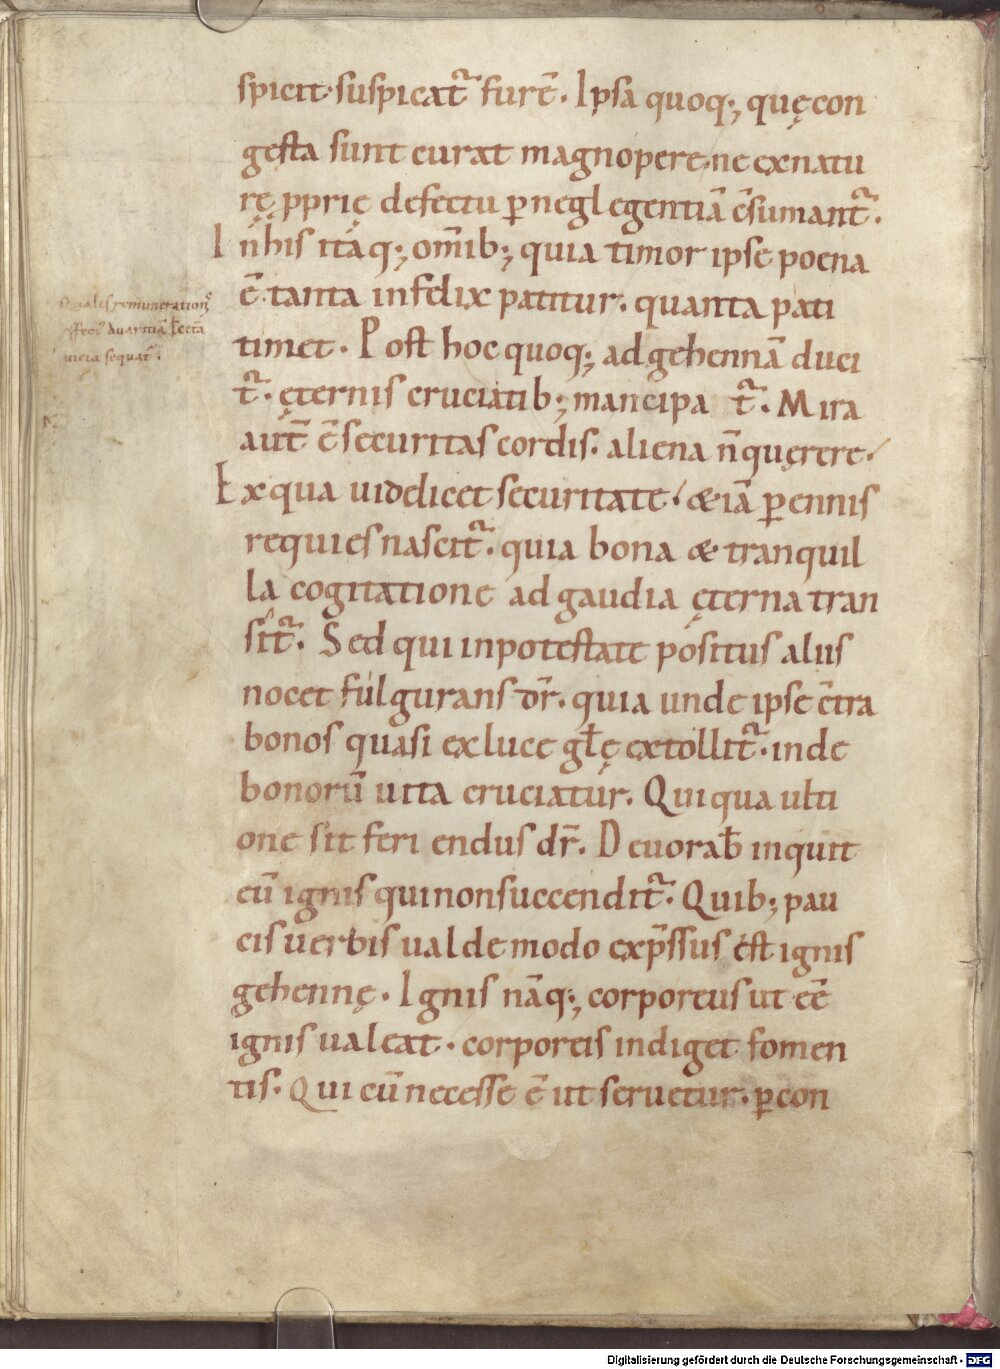 spicit· suspicat᷑ furē. Ipsa quoq;, quę con
gesta sunt curat magnopere, ne ex natu
rę pprię defectu p̱ neglegentiā c̄sumant᷑.
In his itaq;, om̄ib; quia timor ipse poena
ē· tanta infelix patitur. quanta pati
timet. Post hoc quoq;, ad gehennā duci
t᷑. ęternis cruciatib; mancipa t᷑. Mira
aut̄ ē securitas cordis. aliena n̄ quęrere.
Ex qua uidelicet securitate. &iā p̱ennis
requies nascit᷑. quia bona & tranquil
la cogitatione ad gaudia ęterna tran
sit᷑. Sed qui in potestate positus aliis
nocet fulgurans dr̄. quia unde ipse c̄tra
bonos quasi ex luce gl̄ę extollit᷑. inde
bonorū uita cruciatur. Qui qua ulti
one sit feri endus dr̄. Deuorab̄ inquit
eū ignis qui non succendit᷑. Quib; pau
cis uerbis ualde modo exp̄ssus est ignis
gehennę. Ignis nāq;, corporeus ut eē
ignis ualeat. corporeis indiget fomen
tis. Qui cū necesse ē ut seruetur. p̱ con
Qualis remuneration᷒
auaritiā
uicia sequat᷑.
Digitalisierung gefördert durch die Deutsche Forschungsgemeinschaft - DFG